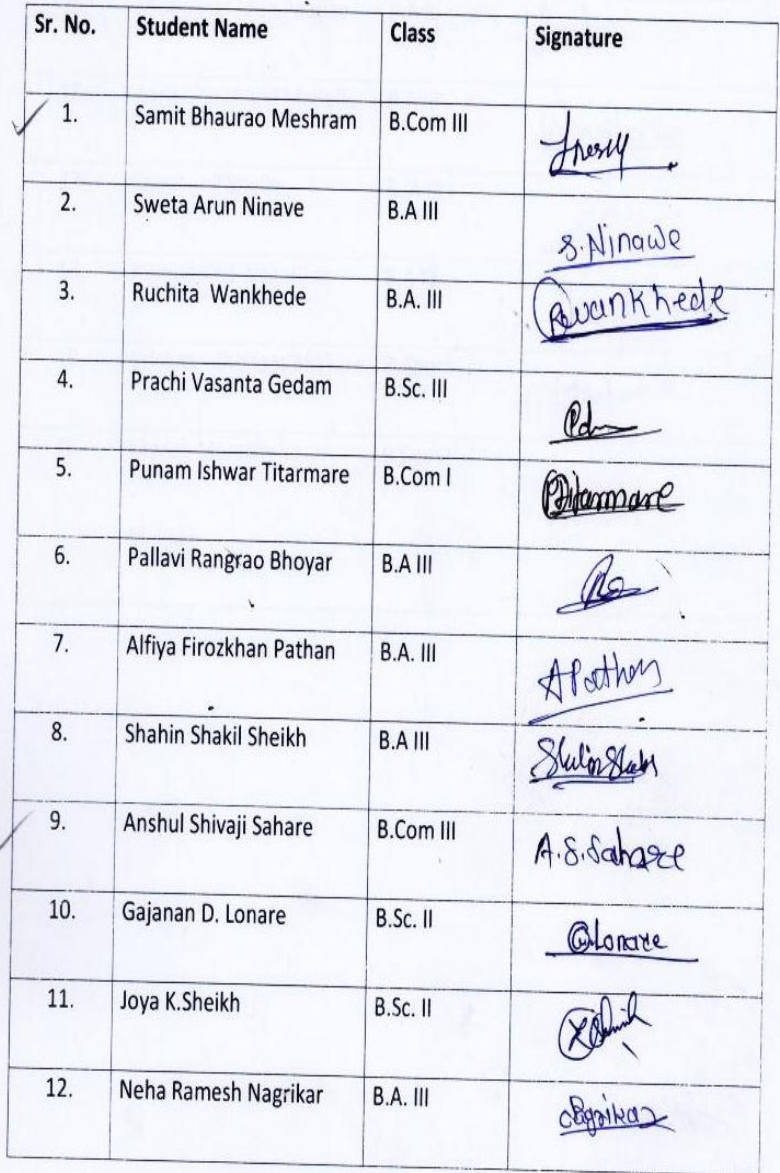 Sr. No. Student Name Class Signature
1. Samit Bhaurao Meshram B.Com III
2. Sweta Arun Ninave B.A III S.Ninawe
3. Ruchita Wankhede B.A. III Rwankhede
4. Prachi Vasanta Gedam B.Sc. III
5. Punam Ishwar Titarmare B.Com I PTitarmare
6. Pallavi Rangrao Bhoyar B.A III
7. Alfiya Firozkhan Pathan B.A. III APathan
8. Shahin Shakil Sheikh B.A III
9. Anshul Shivaji Sahare B.Com III A.S.Sahare
10. Gajanan D. Lonare B.Sc. II G.Lonare
11. Joya K.Sheikh B.Sc. II
12. Neha Ramesh Nagrikar B.A. III